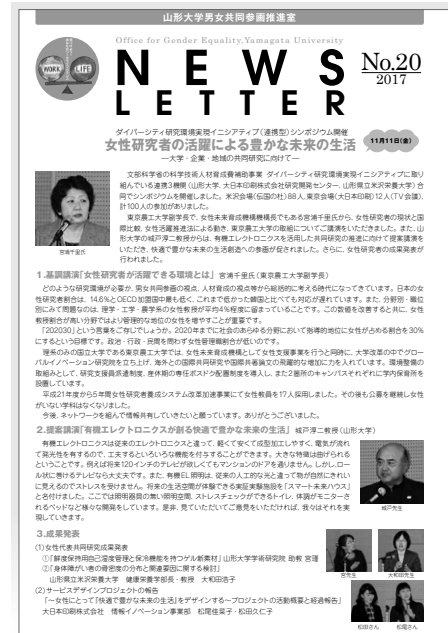 山形大学男女共同参画推進室
Office for Gender Equality, Yamagata University
WORK LIFE
NEWS
LETTER
No.20
2017
ダイバーシティ研究環境実現イニシアティブ(連携型)シンポジウム開催
女性研究者の活躍による豊かな未来の生活
11月11日(金)
―大学・企業・地域の共同研究に向けて―
文部科学省の科学技術人材育成費補助事業 ダイバーシティ研究環境実現イニシアティブに取り
組んでいる連携3機関(山形大学、大日本印刷株式会社研究開発センター、山形県立米沢栄養大学)合
同でシンポジウムを開催しました。米沢会場(伝国の杜)88人、東京会場(大日本印刷)12人(TV会議)、
計100人の参加がありました。
東京農工大学副学長で、女性未来育成機構機構長でもある宮浦千里氏から、女性研究者の現状と国
際比較、女性活躍推進法による動き、東京農工大学の取組についてご講演をいただきました。また、山
形大学の城戸淳二教授からは、有機エレクトロニクスを活用した共同研究の推進に向けて提案講演を
いただき、快適で豊かな未来の生活創造への参画が促されました。さらに、女性研究者の成果発表が
行われました。
宮浦千里氏
1.基調講演「女性研究者が活躍できる環境とは」 宮浦千里氏(東京農工大学副学長)
どのような研究環境が必要か、男女共同参画の視点、人材育成の視点等から総括的に考える時代になってきています。日本の女
性研究者割合は、14.6%とOECD加盟国中最も低く、これまで低かった韓国と比べても対応が遅れています。また、分野別・職位
別にみて問題なのは、理学・工学・農学系の女性教授が平均4%程度に留まっていることです。この数値を改善すると共に、女性
教授割合が高い分野ではより管理的な地位の女性を増やすことが重要です。
「202030」という言葉をご存じでしょうか。2020年までに社会のあらゆる分野において指導的地位に女性が占める割合を30%
にするという目標です。政治・行政・民間を問わず女性管理職割合が低いのです。
理系のみの国立大学である東京農工大学では、女性未来育成機構として女性支援事業を行うと同時に、大学改革の中でグロー
バルイノベーション研究院を立ち上げ、海外との国際共同研究や国際共著論文の飛躍的な増加に力を入れています。環境整備の
取組みとして、研究支援員派遣制度、産休期の専任ポスドク配置制度を導入し、また2箇所のキャンパスそれぞれに学内保育所を
設置しています。
平成21年度から5年間女性研究者養成システム改革加速事業にて女性教員を17人採用しました。その後も公募を継続し女性
がいない学科はなくなりました。
今後、ネットワークを組んで情報共有していきたいと願っています。ありがとうございました。
2.提案講演「有機エレクトロニクスが創る快適で豊かな未来の生活」 城戸淳二教授(山形大学)
有機エレクトロニクスは従来のエレクトロニクスと違って、軽くて安くて成型加工しやすく、電気が流れ
て発光性を有するので、工夫するといろいろな機能を付与することができます。大きな特徴は曲げられる
ということです。例えば将来120インチのテレビが欲しくてもマンションのドアを通りません。しかし、ロー
ル状に巻けるテレビなら大丈夫です。また、有機EL照明は、従来の人工的な光と違って物が自然にきれい
に見えるのでストレスを受けません。将来の生活空間が体験できる実証実験施設を「スマート未来ハウス」
と名付けました。ここでは照明器具の無い照明空間、ストレスチェックができるトイレ、体調がモニターさ
れるベッドなど様々な開発をしています。是非、見ていただいてご意見をいただければ、我々はそれを実
現していきます。
城戸先生
3.成果発表
(1)女性代表共同研究成果発表
①「鮮度保持用自己湿度管理と保冷機能を持つゲル新素材」山形大学学術研究院 助教 宮瑾
②「身体障がい者の骨密度の分布と関連要因に関する検討」
山形県立米沢栄養大学 健康栄養学部長・教授 大和田浩子
(2)サービスデザインプロジェクトの報告
「~女性にとって『快適で豊かな未来の生活』をデザインする~プロジェクトの活動概要と経過報告」
大日本印刷株式会社 情報イノベーション事業部 松尾佳菜子・松田久仁子
宮先生
大和田先生
松田さん
松尾さん